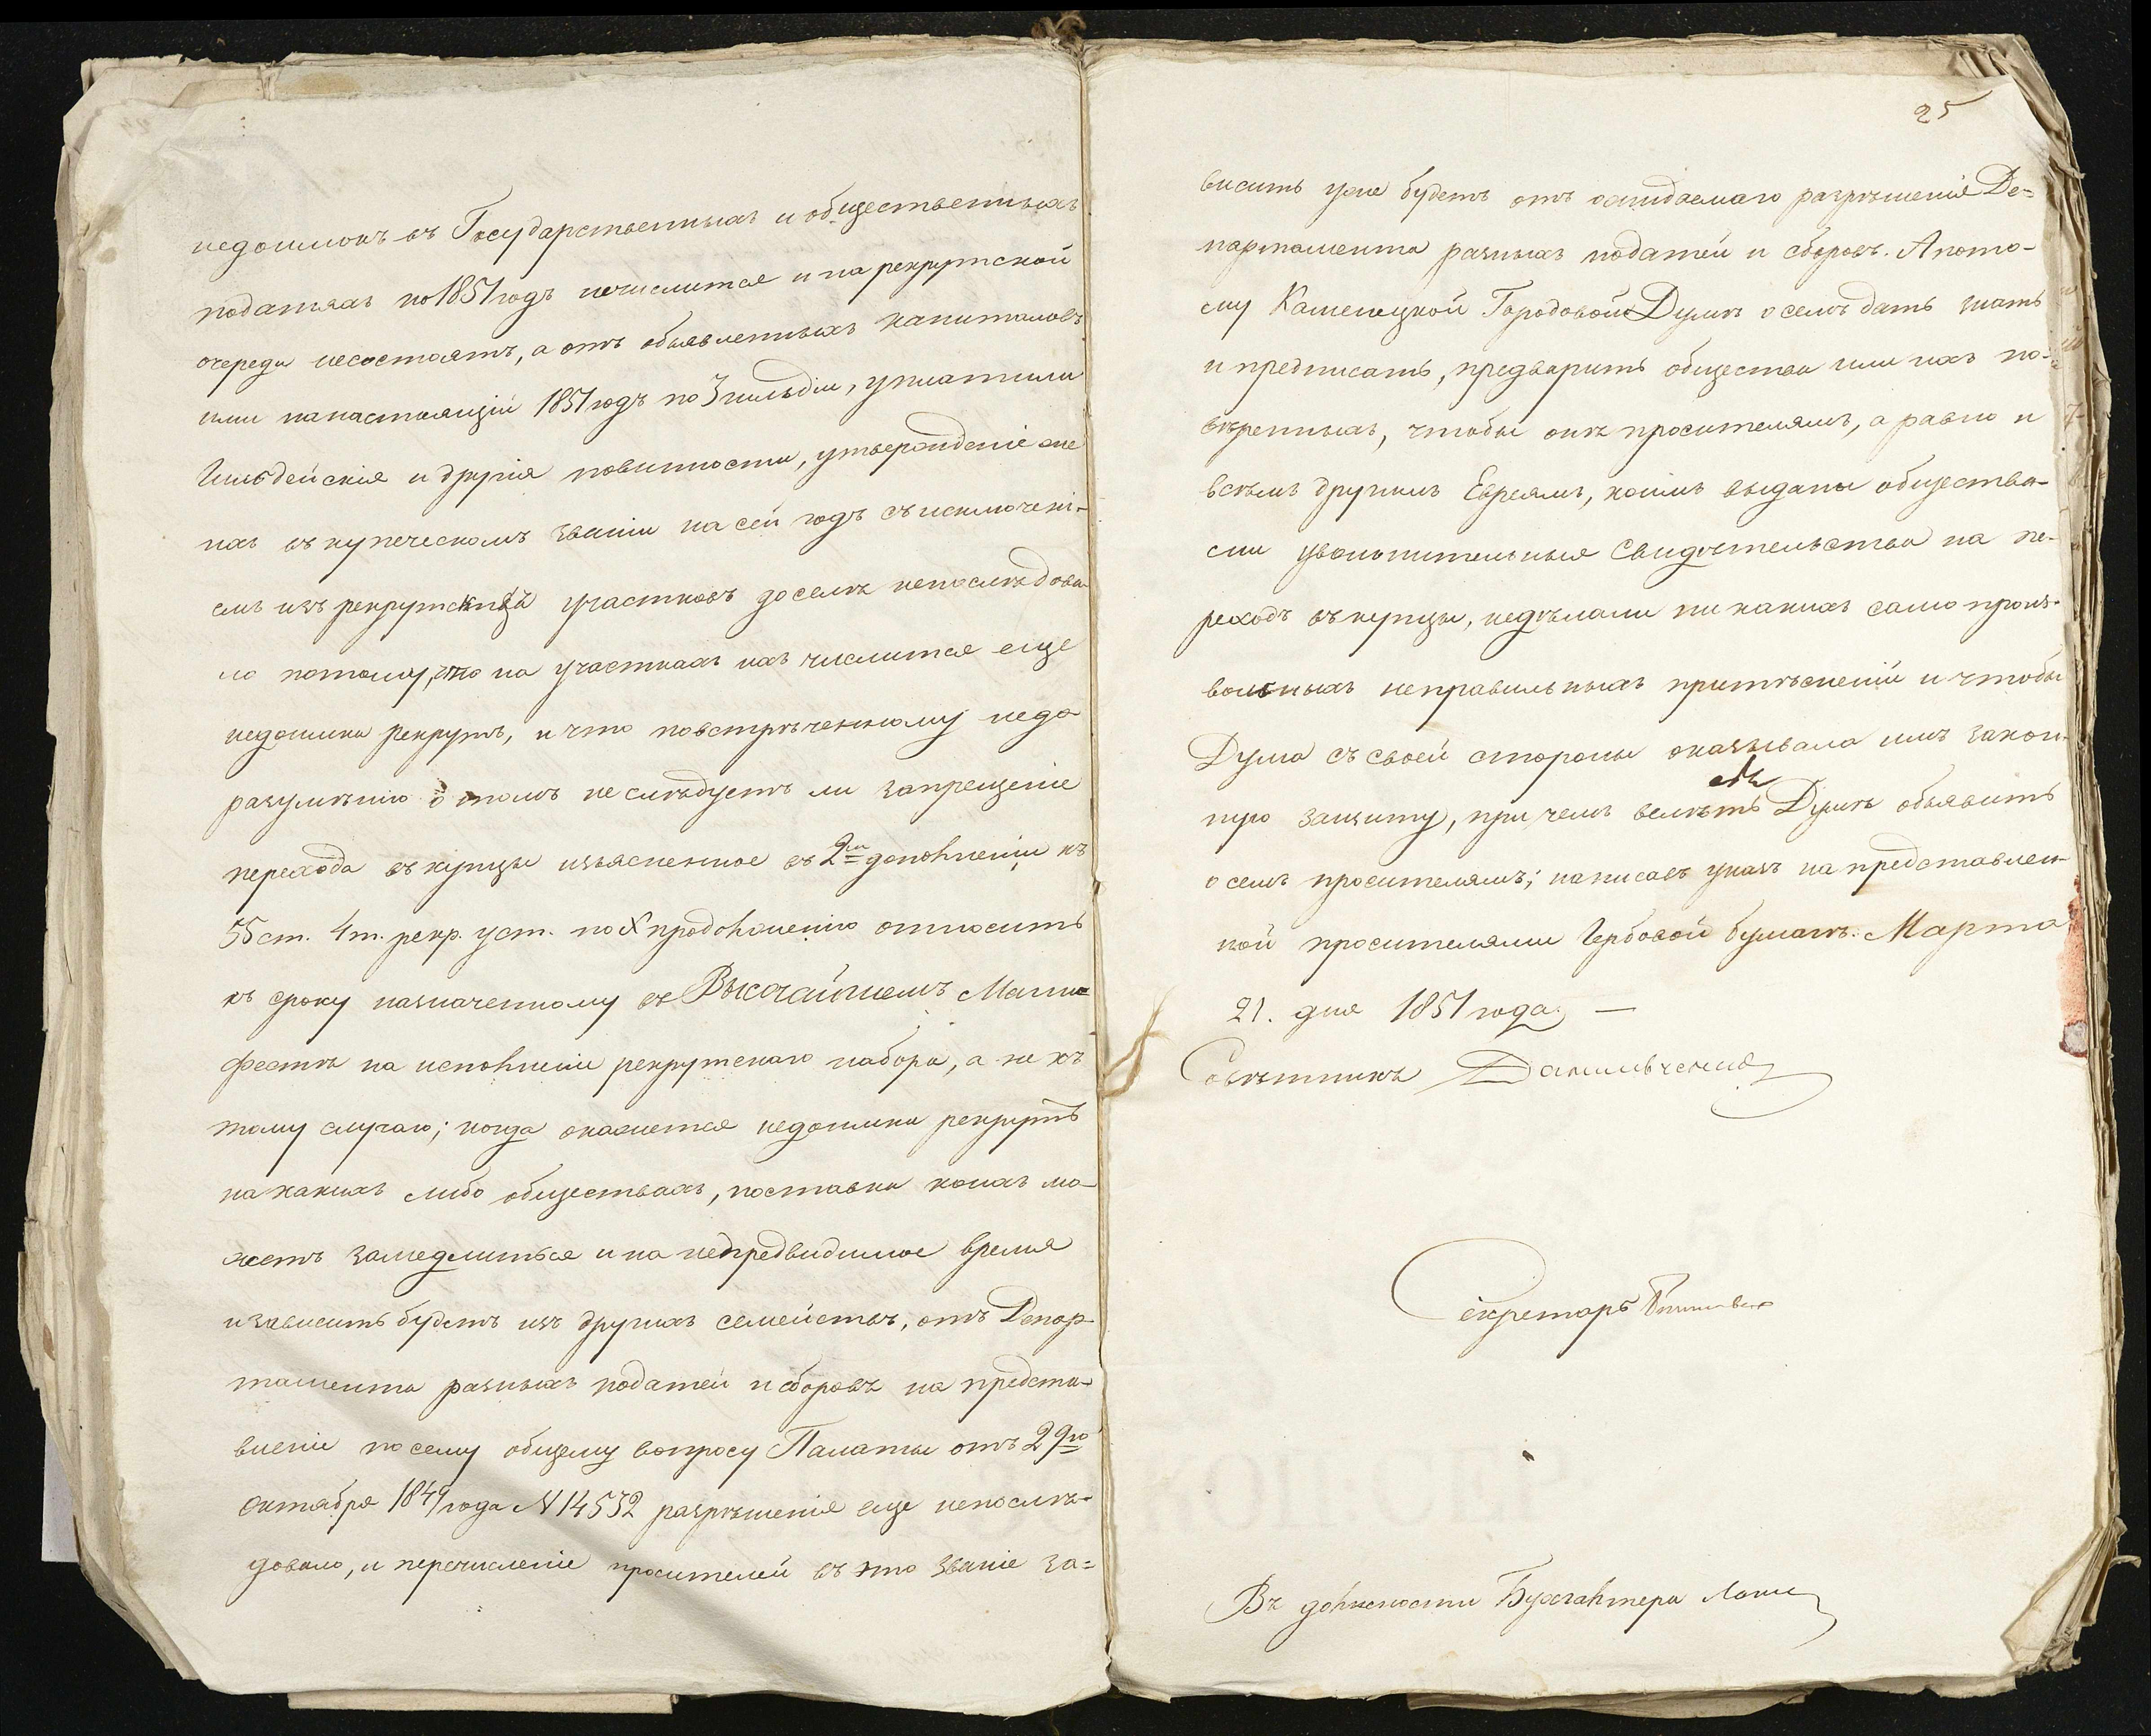 недоимокъ въ Государственныхъ и общественныхъ
податяхъ по 1851 годъ нечислится и на рекрутской
очереди несостоятъ, а отъ объявленныхъ капиталовъ
ими на настоящій 1851 годъ по 3 гильдіи, уплатили
Гильдейскія и другія повинности, утвержденіе же
ихъ въ купеческомъ званіи на сей годъ съ исключені-
емъ изъ рекрутскихъ участковъ доселѣ непослѣдова
ло потому, что на участкахъ ихъ числится еще
недоимка рекрутъ, и что повстрѣченному недо
разумѣнію о томъ не слѣдуетъ ли запрещеніе
перехода въ купцы изъясненное въ 2мъ дополненіи къ
55 ст. 4 т. рекр. уст. по X продолженію относить
къ сроку назначенному въ Высочайшемъ Мани
фестѣ на исполненіи рекрутскаго набора, а не къ
тому случаю; когда окажется недоимка рекрутъ
на какихъ либо обществахъ, поставка коихъ мо-
жетъ замедлиться и на непредвидимое время
и зависить будетъ изъ другихъ семействъ, отъ Депар-
тамента разныхъ податей и сборовъ на предста-
вленіи по сему общему вопросу Палаты отъ 29го
октября 1849 года N 14532 разрѣшенія еще непослѣ-
довало, и перечисленіе просителей въ это званіе за=
25
висить уже будетъ отъ ожидаемаго разрѣшенія Де=
партамента разныхъ податей и сборовъ. А пото-
му Каменецкой Городовой Думѣ о семъ дать знать
и предписать, предварить общества или ихъ по-
вѣренныхъ, чтобы онѣ просителямъ, а равно и
всѣмъ другимъ Евреямъ, коимъ выданы общества-
ми увольнительныя Свидѣтельства на пе-
реходъ въ купцы, недѣлали ни какихъ само произ-
вольныхъ неправильныхъ притѣсненій и чтобы
Дума съ своей стороны оказывала имъ закон-
ную защиту, при чемъ велѣть Думѣ объявить
о семъ просителямъ; написавъ указъ на представлен-
ной просителями Гербовой бумагѣ. Марта
21. дня 1851 года. —
Совѣтникъ Данильченко
Секретарь
Въ должности Бухгалтера